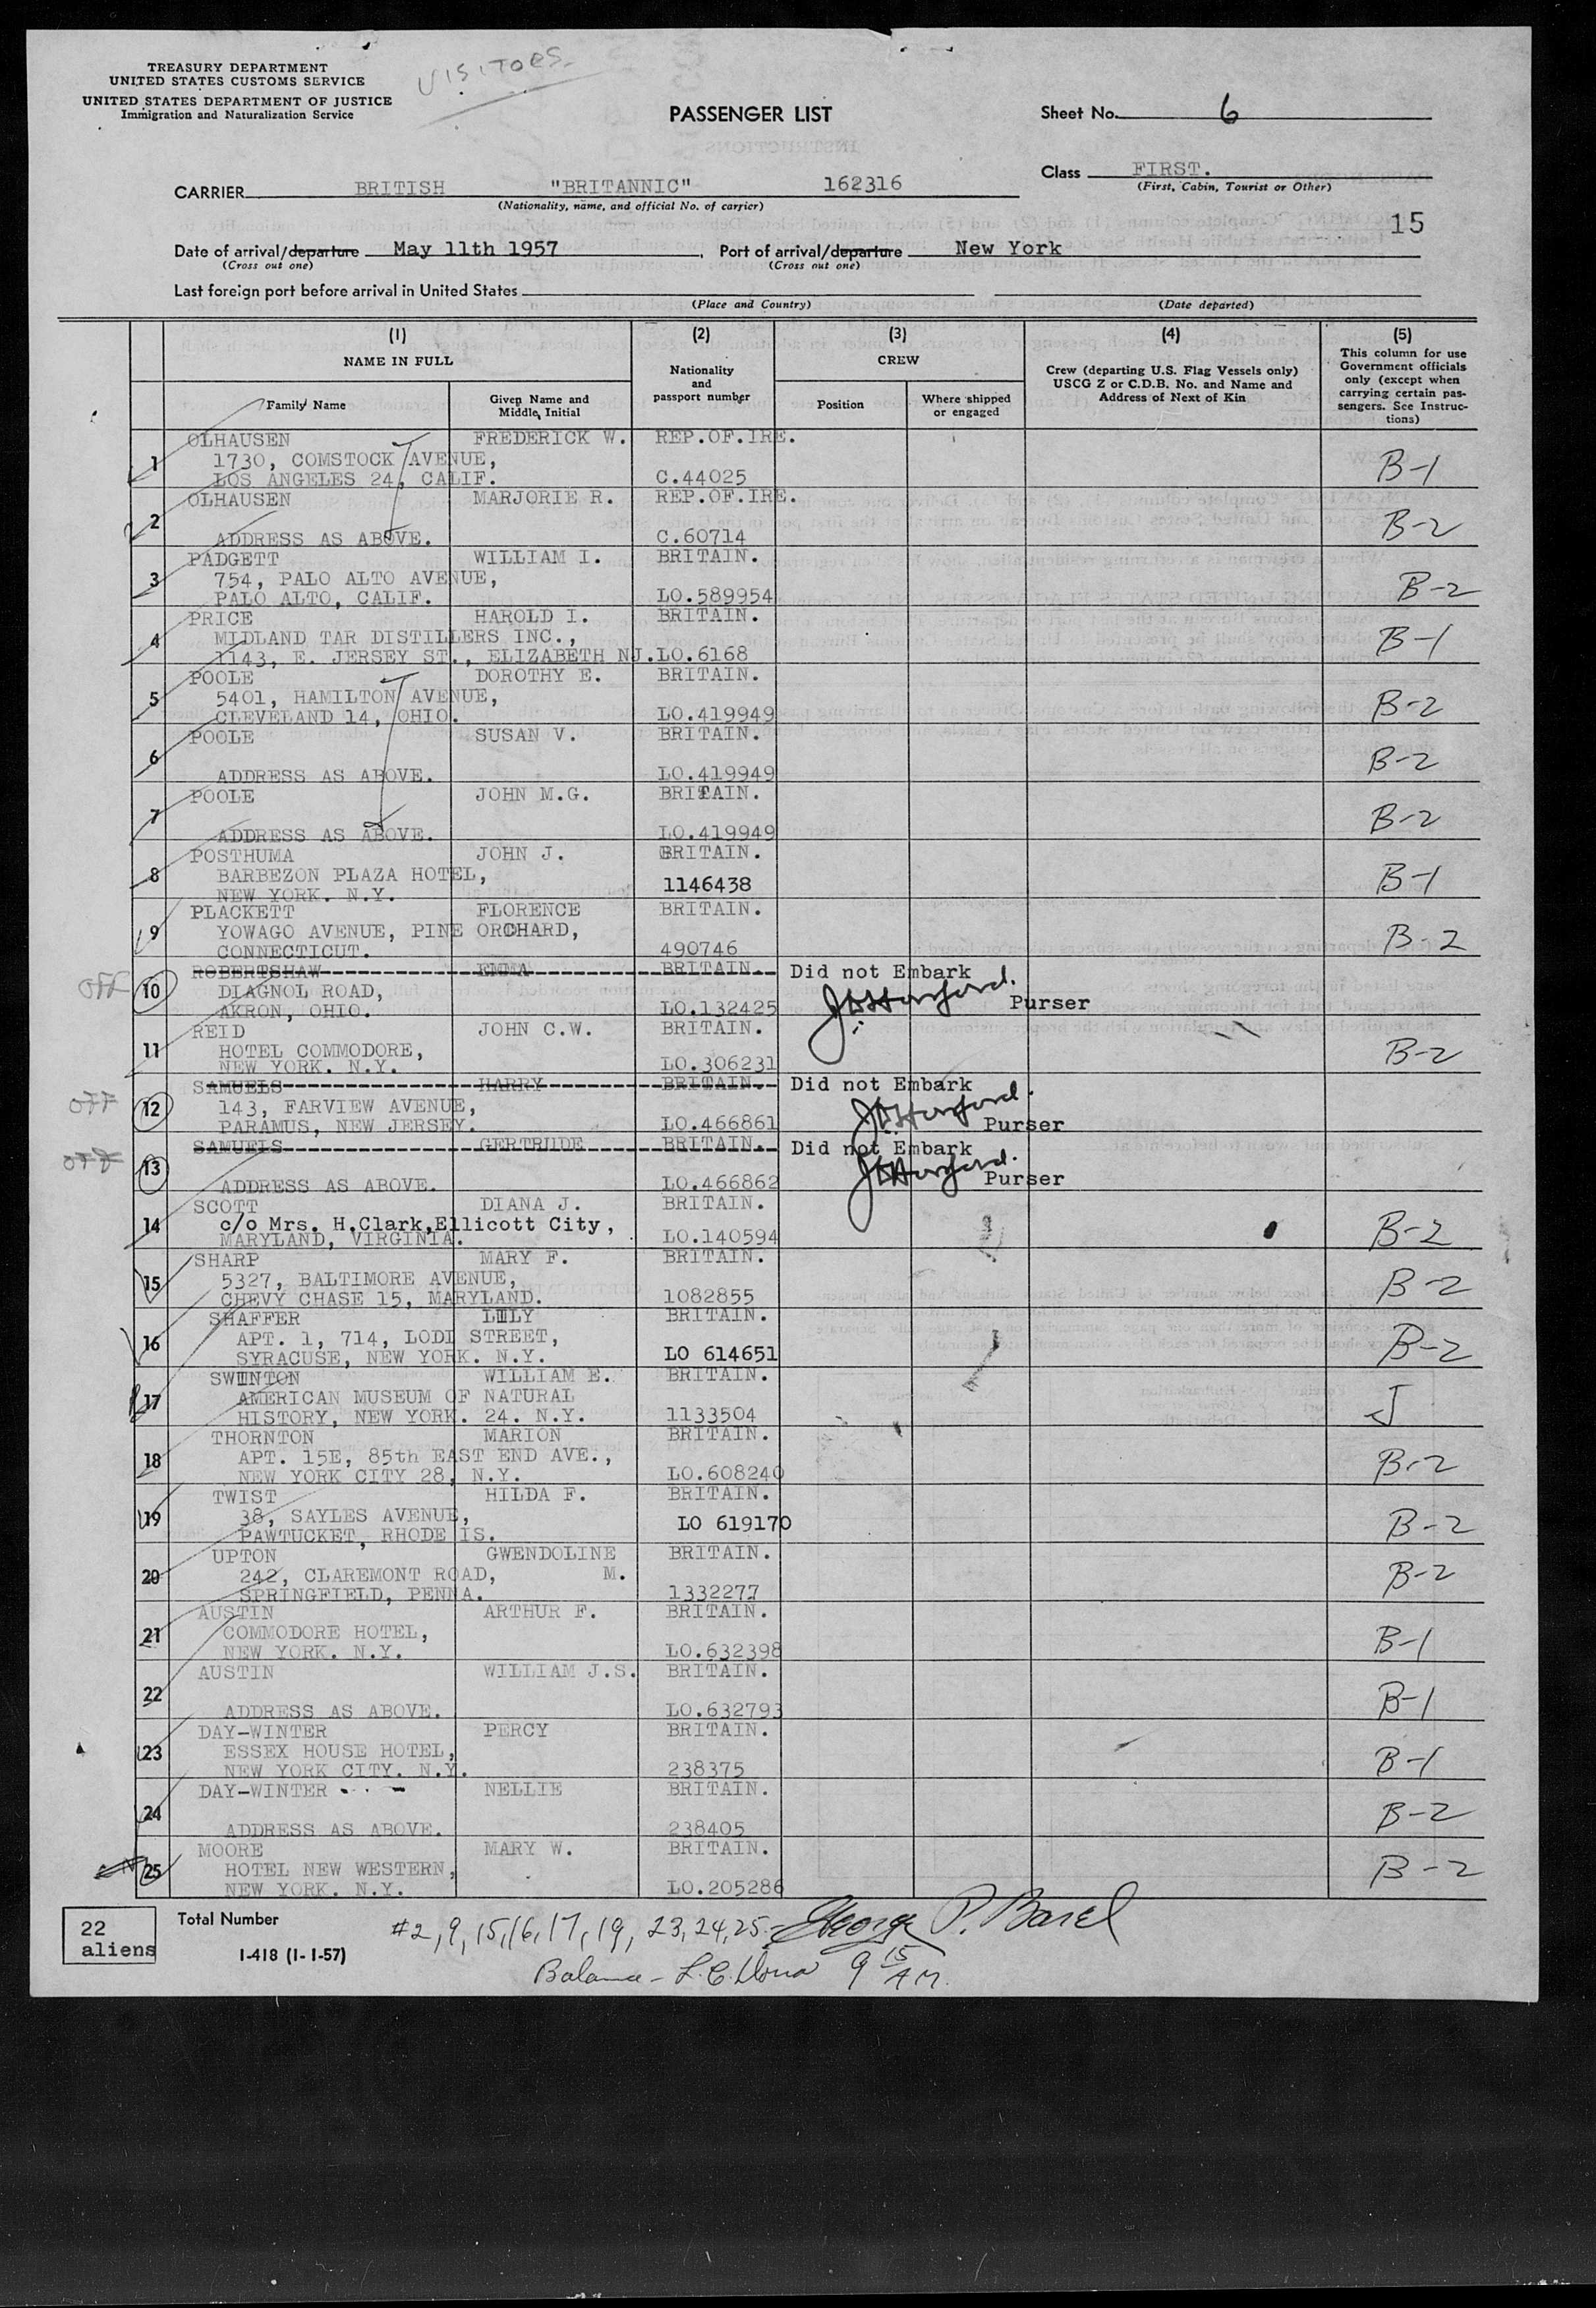 VISITORS.
TREASURY DEPARTMENT
UNITED STATES CUSTOMS SERVICE
UNITED STATES DEPARTMENT OF JUSTICE
Immigration and Naturalization Service
PASSENGER LIST
Sheet No. 6
Class FIRST.
(First, Cabin, Tourist or Other)
CARRIER BRITISH "BRITANNIC" 162316
(Nationality, name, and official No. of carrier)
15
Date of arrival/departure May 11th 1957, Port of arrival/departure New York
(Cross out one) (Cross out one)
Last foreign port before arrival in United States
(Place and Country) (Date departed)
(1) (2) (3) (4) (5)
NAME IN FULL
Nationality and passport number
CREW
Crew (departing U.S. Flag Vessels only) USCG Z or C.D.B. No. and Name and Address of Next of Kin
This column for use Government officials only (except when carrying certain passengers. See Instructions)
Family Name Given Name and Middle Initial Position Where shipped or engaged
OLHAUSEN FREDERICK W. REP.OF.IRE.
1 1730, COMSTOCK AVENUE, B-1
LOS ANGELES 24, CALIF. C.44025
OLHAUSEN MARJORIE R. REP.OF.IRE.
2 B-2
ADDRESS AS ABOVE. C.60714
PADGETT WILLIAM I. BRITAIN.
3 754, PALO ALTO AVENUE, B-2
PALO ALTO, CALIF. LO.589954
PRICE HAROLD I. BRITAIN.
4 MIDLAND TAR DISTILLERS INC., B-1
1143, E. JERSEY ST., ELIZABETH NJ. LO.6168
POOLE DOROTHY E. BRITAIN.
5 5401, HAMILTON AVENUE, B-2
CLEVELAND 14, OHIO. LO.419949
POOLE SUSAN V. BRITAIN.
6 B-2
ADDRESS AS ABOVE. LO.419949
POOLE JOHN M.G. BRITAIN.
7 B-2
ADDRESS AS ABOVE. LO.419949
POSTHUMA JOHN J. BRITAIN.
8 BARBEZON PLAZA HOTEL, 1146438 B-1
NEW YORK. N.Y.
PLACKETT FLORENCE BRITAIN.
9 YOWAGO AVENUE, PINE ORCHARD, B-2
CONNECTICUT. 490746
ROBERTSHAW EMMA BRITAIN. Did not Embark
OFF 10 DIAGNOL ROAD, Purser
AKRON, OHIO. LO.132425
REID JOHN C.W. BRITAIN.
11 HOTEL COMMODORE, B-2
NEW YORK. N.Y. LO.306231
SAMUELS HARRY BRITAIN. Did not Embark
OFF 12 143, FARVIEW AVENUE,
PARAMUS, NEW JERSEY. LO.466861 Purser
SAMUELS GERTRUDE BRITAIN. Did not Embark
OFF 13
ADDRESS AS ABOVE. LO.466862 Purser
SCOTT DIANA J. BRITAIN.
14 c/o Mrs. H.Clark,Ellicott City, B-2
MARYLAND, VIRGINIA. LO.140594
SHARP MARY F. BRITAIN.
15 5327, BALTIMORE AVENUE, B-2
CHEVY CHASE 15, MARYLAND. 1082855
SHAFFER LILY BRITAIN.
16 APT. 1, 714, LODI STREET, B-2
SYRACUSE, NEW YORK. N.Y. LO 614651
SWINTON WILLIAM E. BRITAIN.
17 AMERICAN MUSEUM OF NATURAL J
HISTORY, NEW YORK. 24. N.Y. 1133504
THORNTON MARION BRITAIN.
18 APT. 15E, 85th EAST END AVE., B-2
NEW YORK CITY 28, N.Y. LO.608240
TWIST HILDA F. BRITAIN.
19 38, SAYLES AVENUE, LO 619170 B-2
PAWTUCKET, RHODE IS.
UPTON GWENDOLINE BRITAIN.
20 242, CLAREMONT ROAD, M. B-2
SPRINGFIELD, PENNA. 1332277
AUSTIN ARTHUR F. BRITAIN.
21 COMMODORE HOTEL, B-1
NEW YORK. N.Y. LO.632398
AUSTIN WILLIAM J.S. BRITAIN.
22 B-1
ADDRESS AS ABOVE. LO.632793
DAY-WINTER PERCY BRITAIN.
23 ESSEX HOUSE HOTEL, B-1
NEW YORK CITY. N.Y. 238375
DAY-WINTER NELLIE BRITAIN.
24 B-2
ADDRESS AS ABOVE. 238405
MOORE MARY W. BRITAIN.
25 HOTEL NEW WESTERN, B-2
NEW YORK. N.Y. LO.205286
22 aliens
Total Number
I-418 (1-1-57)
#2, 9, 15, 16, 17, 19, 23, 24, 25- George P.
Balance - L.C. 9 15 AM.